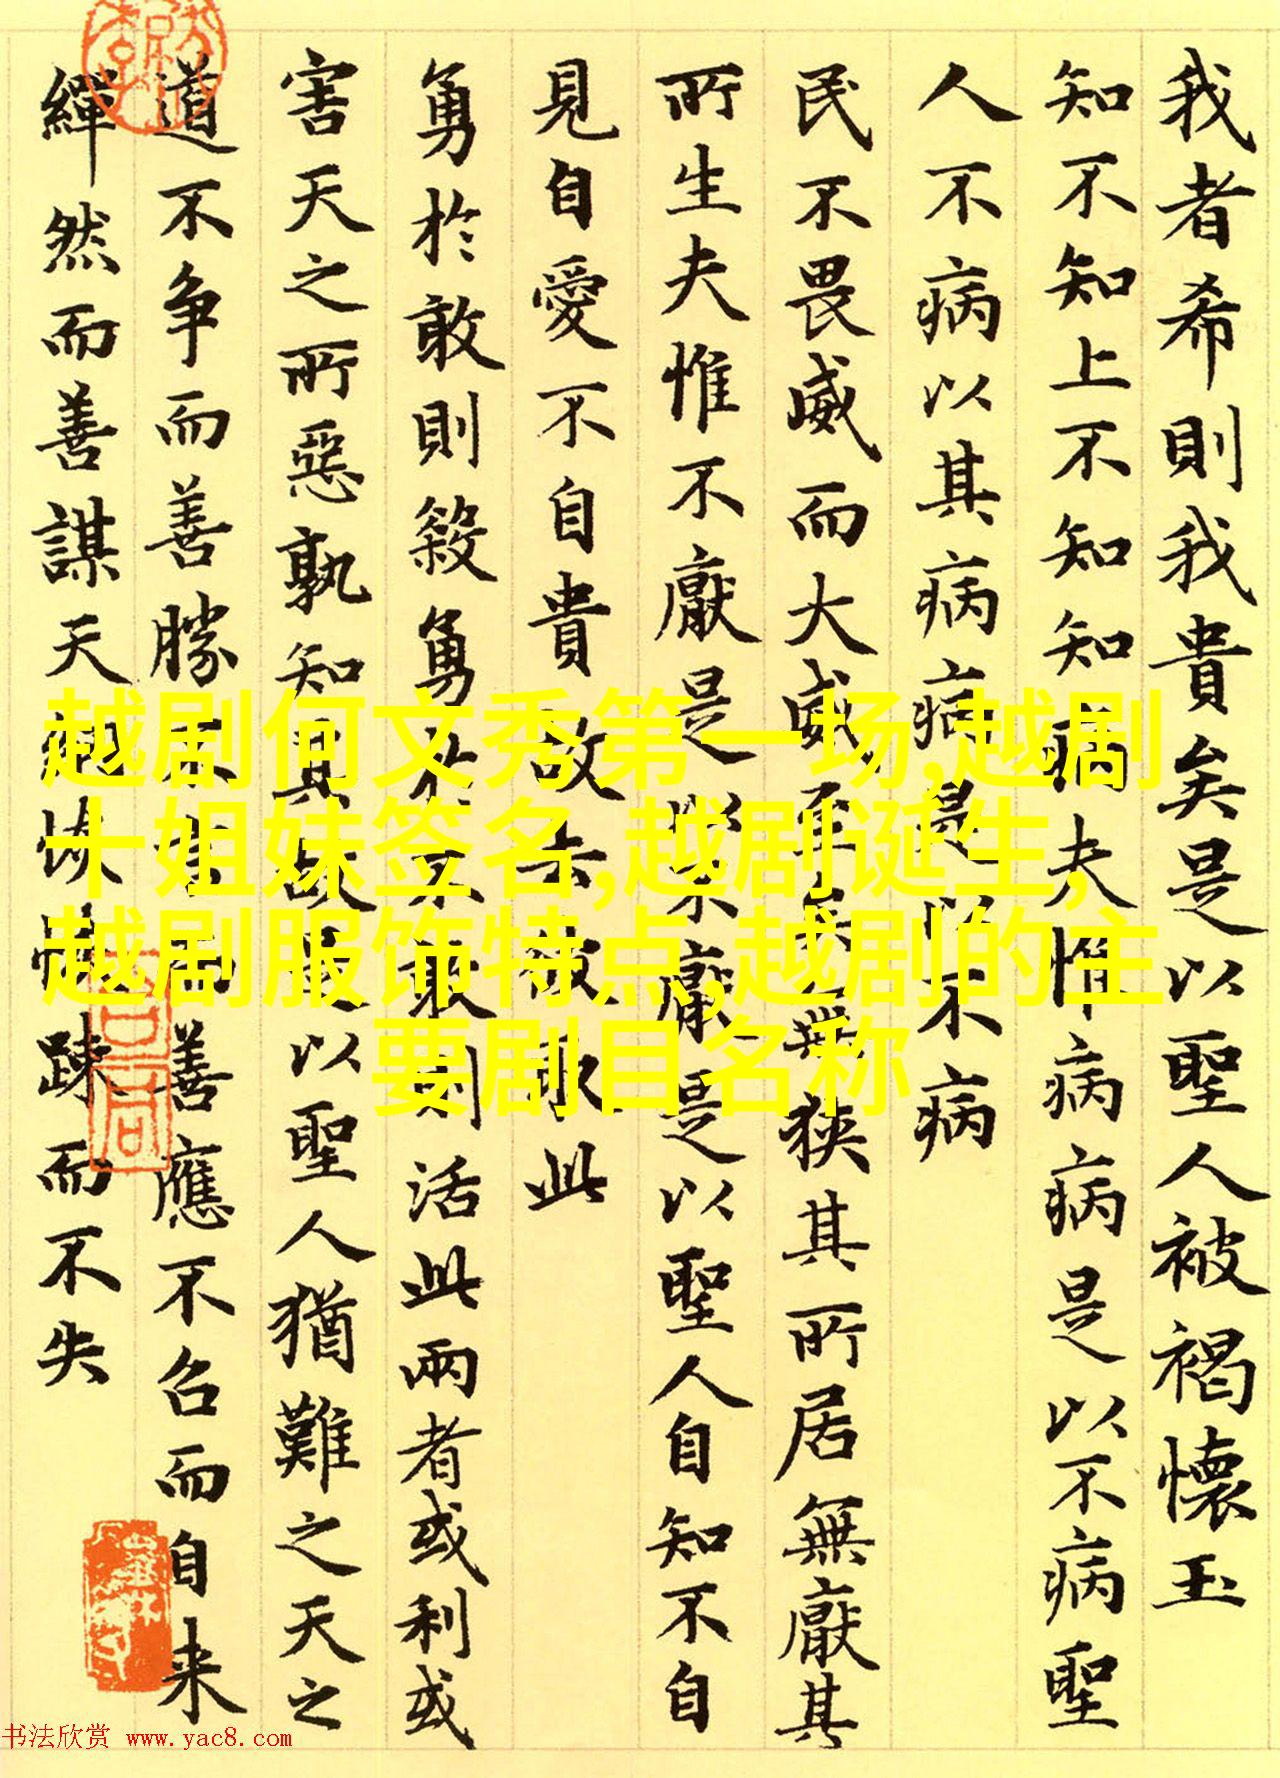 我者希則我貴矣是以聖人被褐懷玉
知不知上不知知病夫惟病病是以不病聖
人不病以其病病是以不病
民不畏威而大威至矣無狹其所居無厭其
所生夫惟不厭是以不厭是以聖人自知不自
見自愛不自貴故去彼取此
勇於敢則殺勇於不敢則活此兩者或利或
害天之所惡孰知其故是以聖人猶難之天之
道不争而善勝不言而善應不召而自来
繟然而善謀天網恢恢踈而不失
越剧何文秀第一场,越剧
十姐妹签名,越剧诞生,
越剧服饰特点,越剧的主
要剧目名称
书法欣赏 www.yac8.com